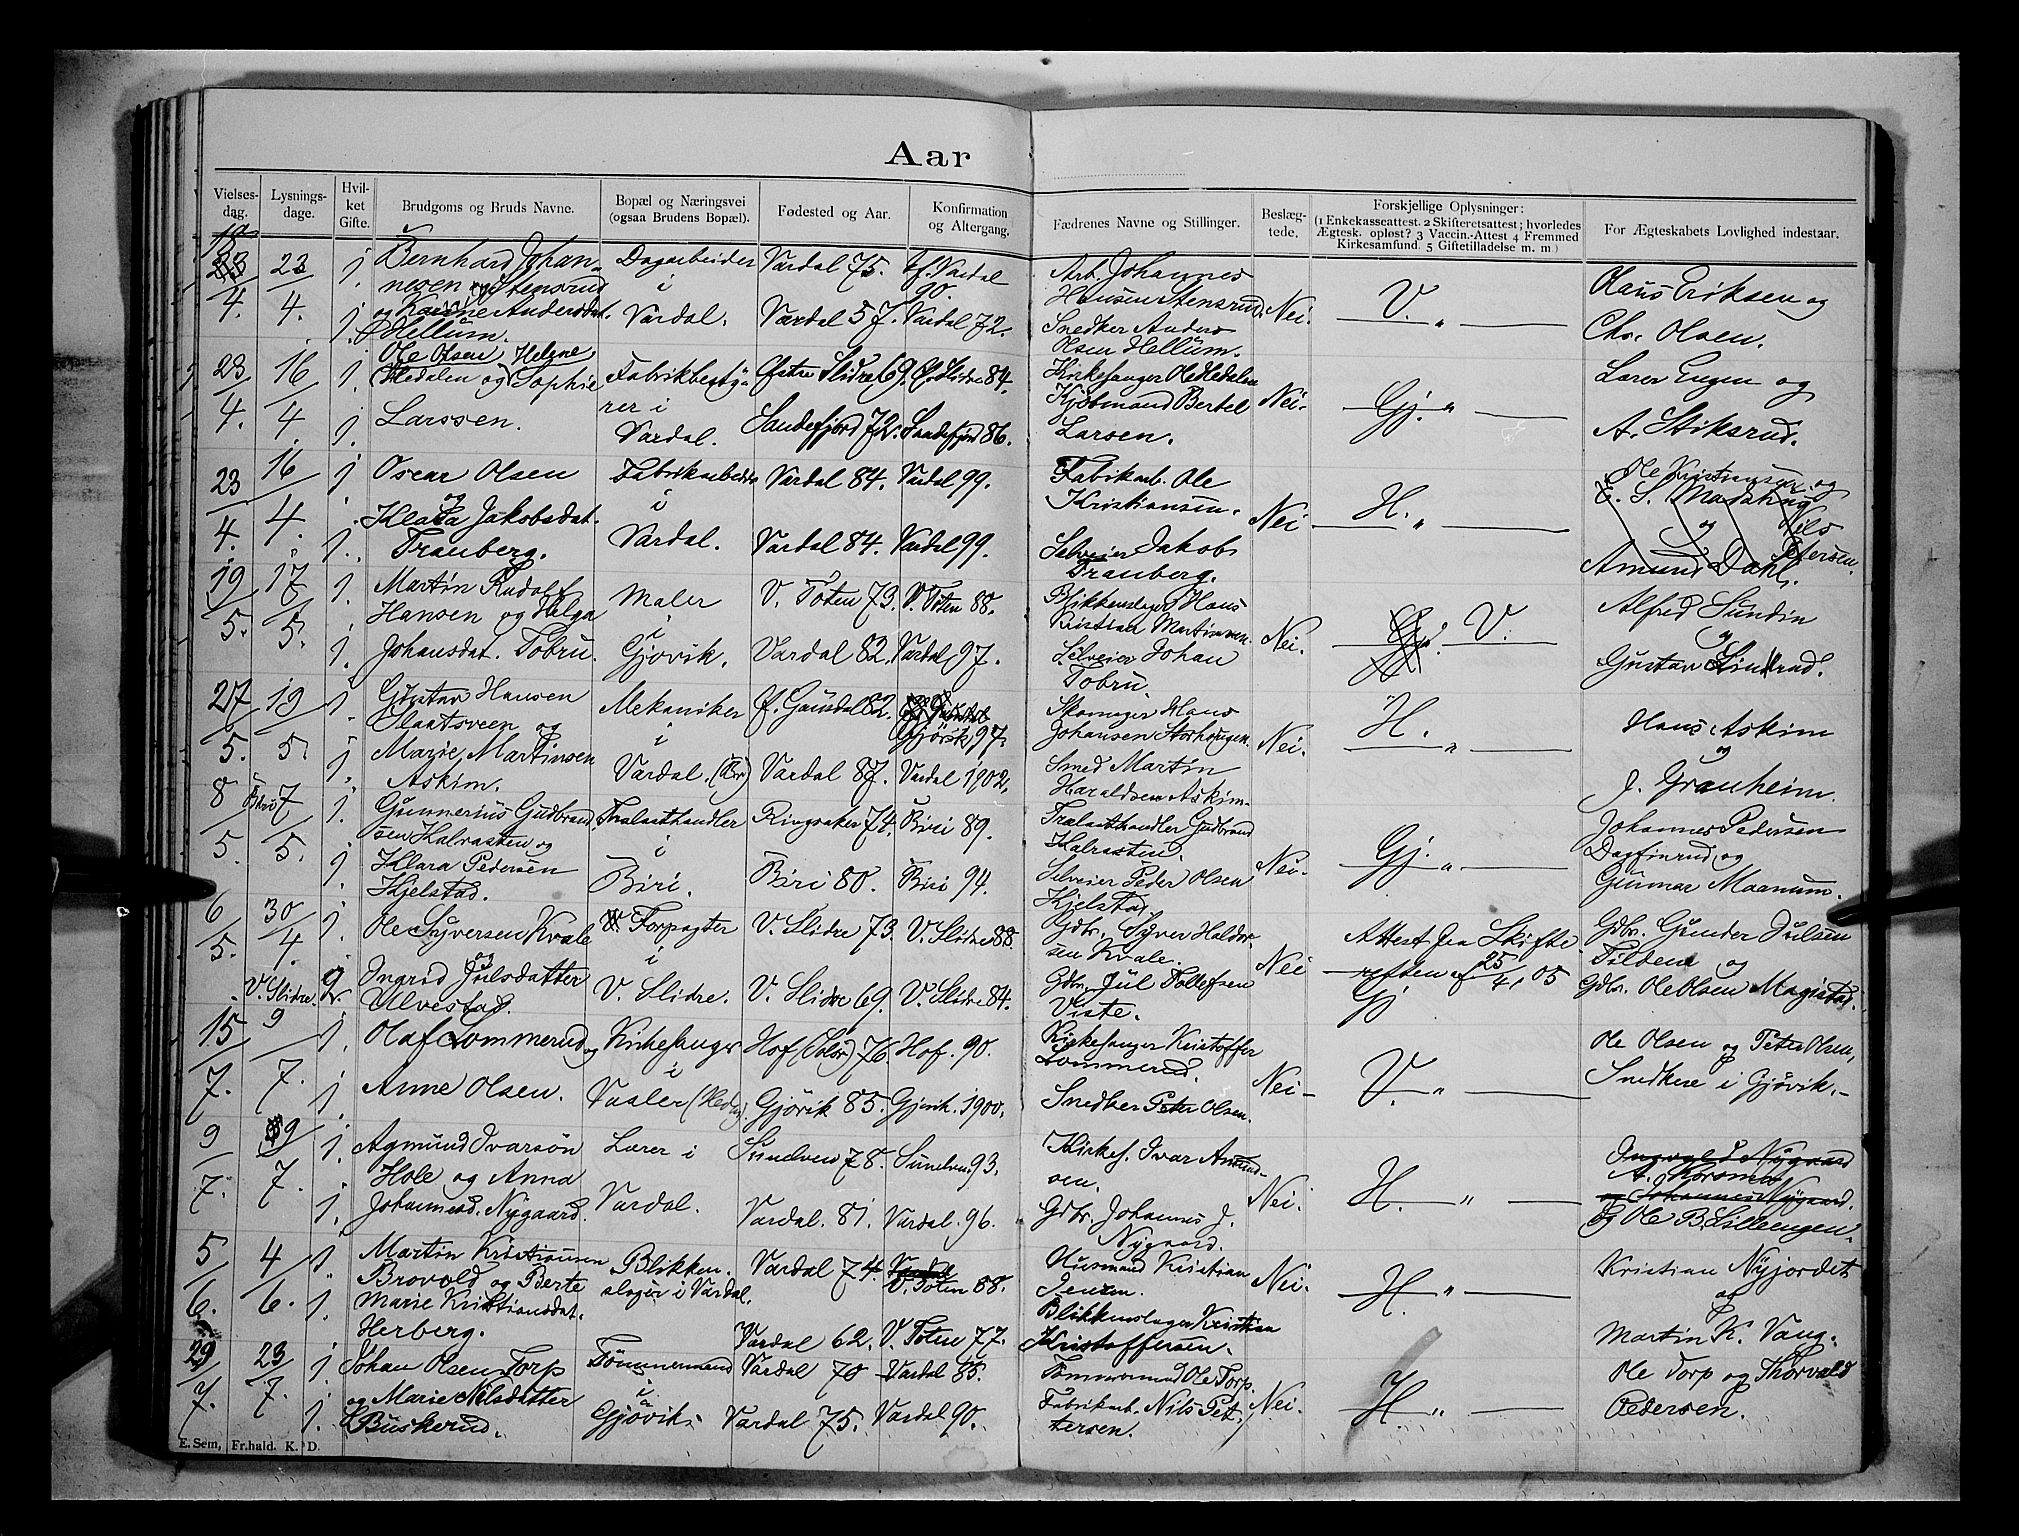 Aar
Vielses-dag. Lysnings-dage. Hvil-ket Gifte. Brudgoms og Bruds Navne. Bopæl og Næringsvei (ogsaa Brudens Bopæl). Fødested og Aar. Konfirmation og Altergang. Fædrenes Navne og Stillinger. Beslæg-tede. Forskjellige Oplysninger: (1 Enkekasseattest. 2 Skifteretsattest; hvorledes Ægtesk. opløst? 3 Vaccin.-Attest 4 Fremmed Kirkesamfund. 5 Giftetilladelse m. m.) For Ægteskabets Lovlighed indestaar.
23 1. Bernhard Johan- Dagarbeider Vardal 75. Vardal Arb. Johannes Olaus Eriksen og
4. 4. nesen Stensrud i 90. Hansen Stensrud. Nei. V. "
og Andersdat. Vardal. Vardal 57. Vardal 72. Snedker Anders Chr. Olsen.
1. Hellum. Olsen Hellum.
23 16 1. Ole Olsen Helene Fabrikbesty- Østre Slidre 69. Slidre 84. Kirkesanger Ole Hedalen Lærer Engen og
Hedalen og Sophie rer i Kjøbmand Bertel Nei. Gj. "
4. 4. 1. Larssen. Vardal. Sandefjord 72. Sandefjord 86. Larsen. A. Stiksrud.
23 16 1 Oscar Olsen Fabrikarbeider Vardal 84. Vardal 99. Fabrikarb. Ole Ole Kristiansen og
og i Kristiansen. Nei H. "
4. 4. 1. Klara Jakobsdat. Vardal. Vardal 84. Vardal 99. Selveier Jakob og Nils Petersen.
Tranberg. Tranberg. Amund Dahl.
19 17 1. Martin Rudolf Maler V. Toten 73. V. Toten 88. Blikkenslager Hans Alfred Sundin
5. 5. Hansen og Helga i Kristian Martinsen. Nei. V. og
1. Johansdat. Tobru. Gjøvik. Vardal 82. Vardal 97. Selveier Johan Gustav
Tobru.
27 19 1. Gustav Hansen Mekaniker Gausdal 82. Gjøvik 97. Skomager Hans H. Hans Askim
Slaatsveen og i Johansen Storhaugen. Nei. " og
5. 5. 1. Marie Martinsen Vardal. Vardal 87. Vardal 1902. Smed Martin J. Granheim.
Askim. Haraldsen Askim.
8 Biri 7 1. Gunnerius Gudbrand- Trælasthandler Ringsaker 74. Biri 89. Trælasthandler Gudbrand Johannes Pedersen
sen Kalrasten og i Kalrasten. Nei. Gj. " Dagfinrud og
5. 5. 1. Klara Pedersen Biri. Biri 80. Biri 94. Selveier Peder Olsen Gunnar Maanum.
Kjelstad. Kjelstad.
6 30 1. Ole Syversen Kvale Forpagter V. Slidre 73. V. Slidre 88. Gdbr. Syver Haldor- Attest fra Skifte- Gdbr. Gunder Julsen
5. 4. og i sen Kvale. Nei retten af 25/4, 05 Filden og
V. Slidre. Ingrid Julsdatter V. Slidre. V. Slidre 69. V. Slidre 84. Gdbr. Jul Tollefsen Gj Gdbr. Ole Olsen
Ulvestad. Viste.
15 9 1. Olaf Lommerud og Kirkesanger Hof (Solør) 76. Hof. 90. Kirkesanger Kristoffer Ole Olsen og Peter Olsen,
i Lommerud. Nei V. "
7. 7. 1. Anne Olsen. Vaaler (Hedm.) Gjøvik 85. Gjøvik. 1900. Snedker Peter Olsen. Snedkere i Gjøvik.
9 9 1. Agmund Ivarsøn Lærer i Sundven 78. Sundven 93. Kirkes. Ivar Ingvald Nygaard
Hole og Anna sen. Nei. H. " A.
7. 7. 1. Johannesd. Nygaard. Vardal. Vardal. 81. Vardal. 96. Gdbr. Johannes J. og Johannes Nygaard.
Nygaard. og Ole B. Lillengen.
5 4 1. Martin Kristiansen Blikken- Vardal 74. Vardal Husmand Kristian Kristian Nyjordet
Brovold og Berte slager i Vardal. V. Toten 88. Jensen. Nei. H. " og
6. 6. 1. Marie Kristiansdat. Blikkenslager Kristian
Herberg. Vardal 62. V. Toten 77. Kristoffersen. Martin K. Vang.
29 23 1. Johan Olsen Torp Tømmermand Vardal 70 Vardal 85. Tømmermand Ole Torp. Ole Torp og Thorvald
7. 7. og Marie Nilsdatter i Fabrikarb. Nils Pet- Nei. H. "
1. Buskerud. Gjøvik. Vardal 75. Vardal 90. tersen. Pedersen.
E. Sem, Fr.hald. K. D.